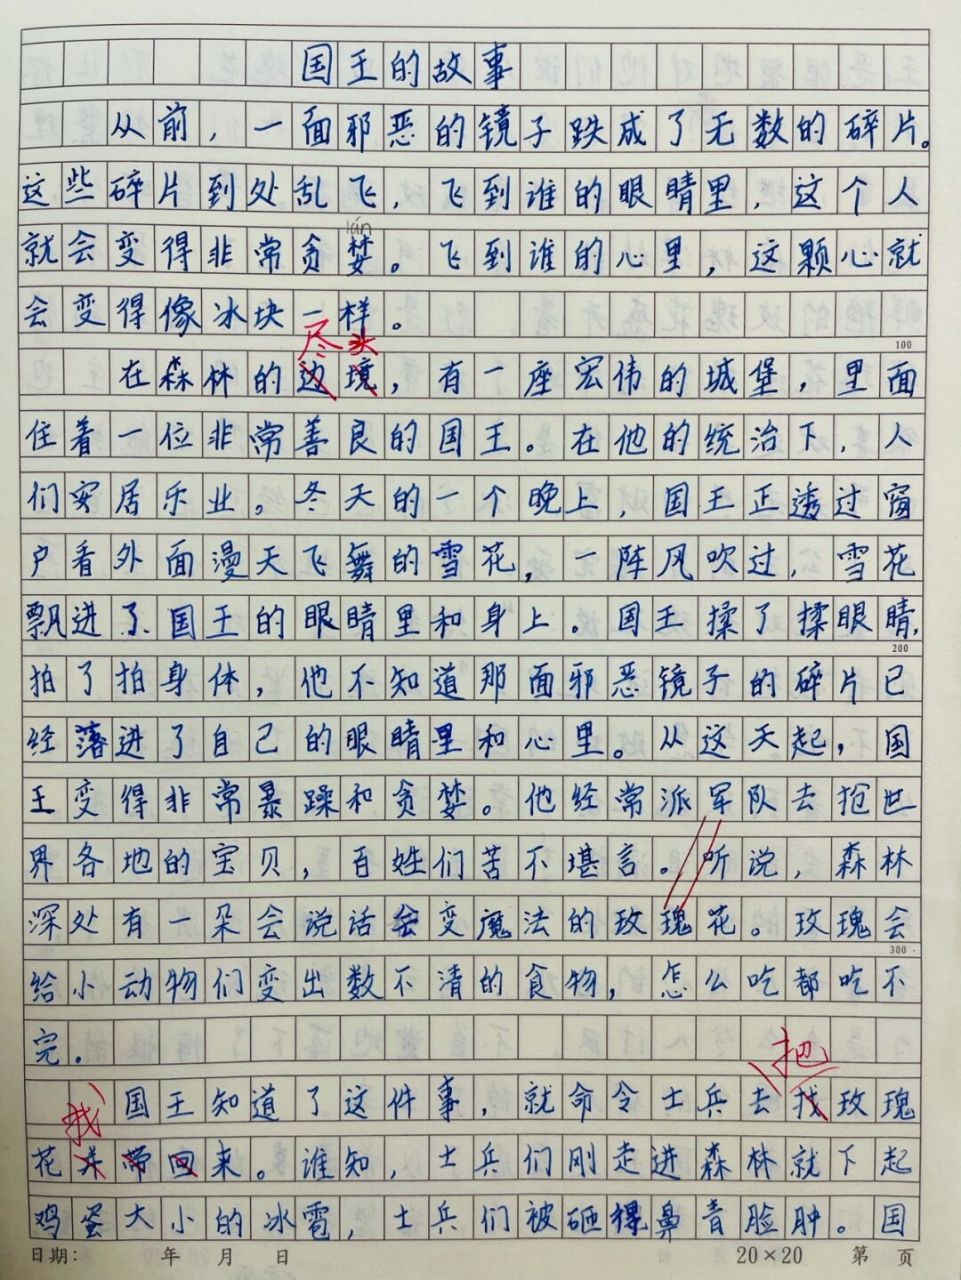 国王的故事
从前，一面邪恶的镜子跌成了无数的碎片。
这些碎片到处乱飞，飞到谁的眼睛里，这个人
lán
就会变得非常贪婪。飞到谁的心里，这颗心就
会变得像冰块一样。
100
尽头
在森林的边境，有一座宏伟的城堡，里面
住着一位非常善良的国王。在他的统治下，人
们安居乐业。冬天的一个晚上，国王正透过窗
户看外面漫天飞舞的雪花，一阵风吹过，雪花
飘进了国王的眼睛里和身上。国王揉了揉眼睛，
200
拍了拍身体，他不知道那面邪恶镜子的碎片已
经落进了自己的眼睛里和心里。从这天起，国
王变得非常暴躁和贪婪。他经常派军队去抢世
界各地的宝贝，百姓们苦不堪言。听说，森林
深处有一朵会说话会变魔法的玫瑰花。玫瑰会
300
给小动物们变出数不清的食物，怎么吃都吃不
完。
把
国王知道了这件事，就命令士兵去找玫瑰
找
花带回来。谁知，士兵们刚走进森林就下起
鸡蛋大小的冰雹，士兵们被砸得鼻青脸肿。国
日期： 年 月 日 20×20 第 页